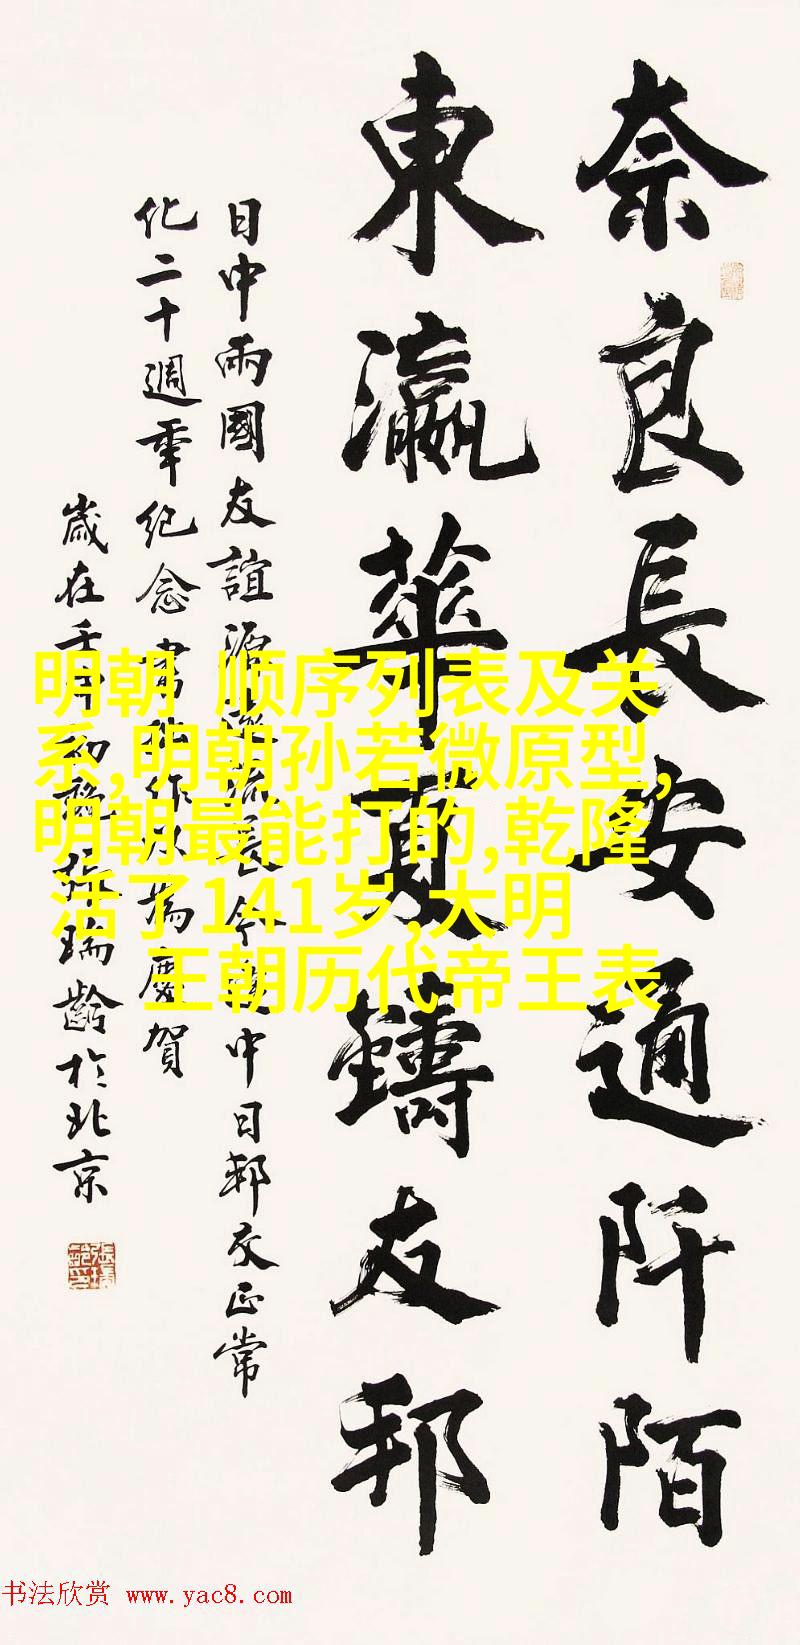 奈良長安通阡陌
東瀛華夏鑄友邦
日中兩國友誼源遠流長今歲中日邦交正常
化二十週年紀念書此作以為慶賀
歲在壬申初春張瑞齡於北京
明朝 顺序列表及关
系,明朝孙若微原型,
明朝最能打的,乾隆
活了141岁,大明
王朝历代帝王表
书法欣赏 www.yac8.com